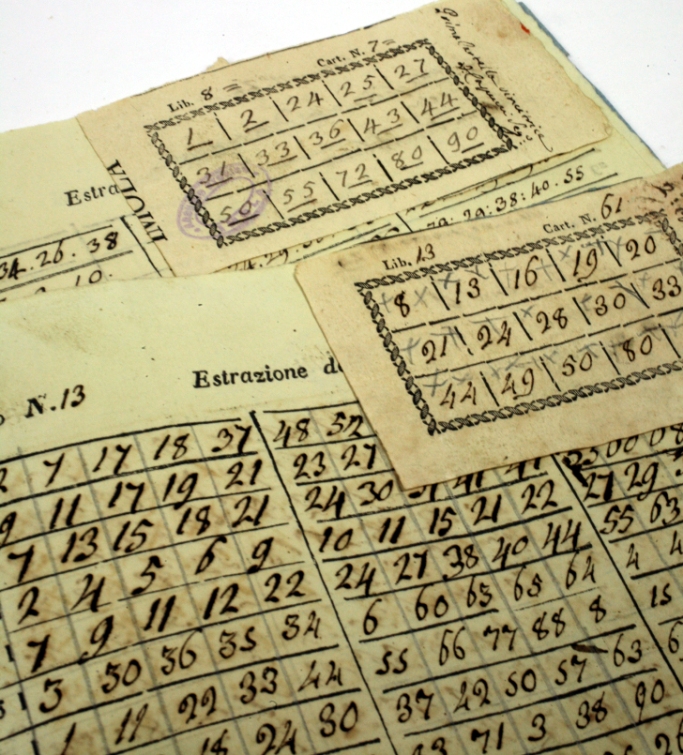 Lib. 8 = Cart. N. 7 =
1 2 24 25 27
31 33 36 43 44
50 55 72 80 90
IMOLA
Estra
34.26.38
10.
29:38:40.55
24.29.
Lib. 13 Cart. N. 61
8 13 16 19 20
21 24 28 30 33
44 49 50 80
N.13 Estrazione de
2 7 17 18 37 48 52
9 11 17 19 21 23 27
7 13 15 18 21 24 30
2 4 5 6 9 10 11 15 21 22 27 29
7 9 11 12 22 24 27 38 40 44 55 63
3 30 36 35 34 6 60 63 65 64 4 4
1 11 22 33 44 55 66 77 88 8 15
18 24 30 37 42 50 57 63 6
71 3 38 90